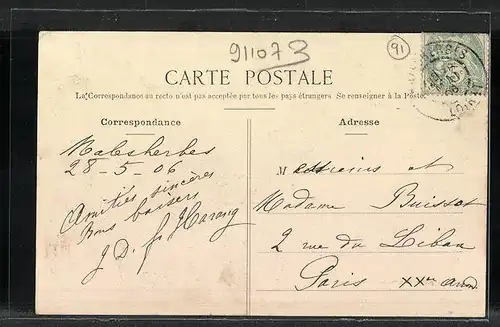 911073
91
CARTE POSTALE
La Correspondance au recto n'est pas acceptée par tous les pays étrangers. Se renseigner à la Poste.
Correspondance
Adresse
Malesherbes
28-5-06
Amitiés sincères
Bons baisers
J. D. Harang
Monsieur et
Madame Buissot
2 rue du Liban
Paris XXme arrd